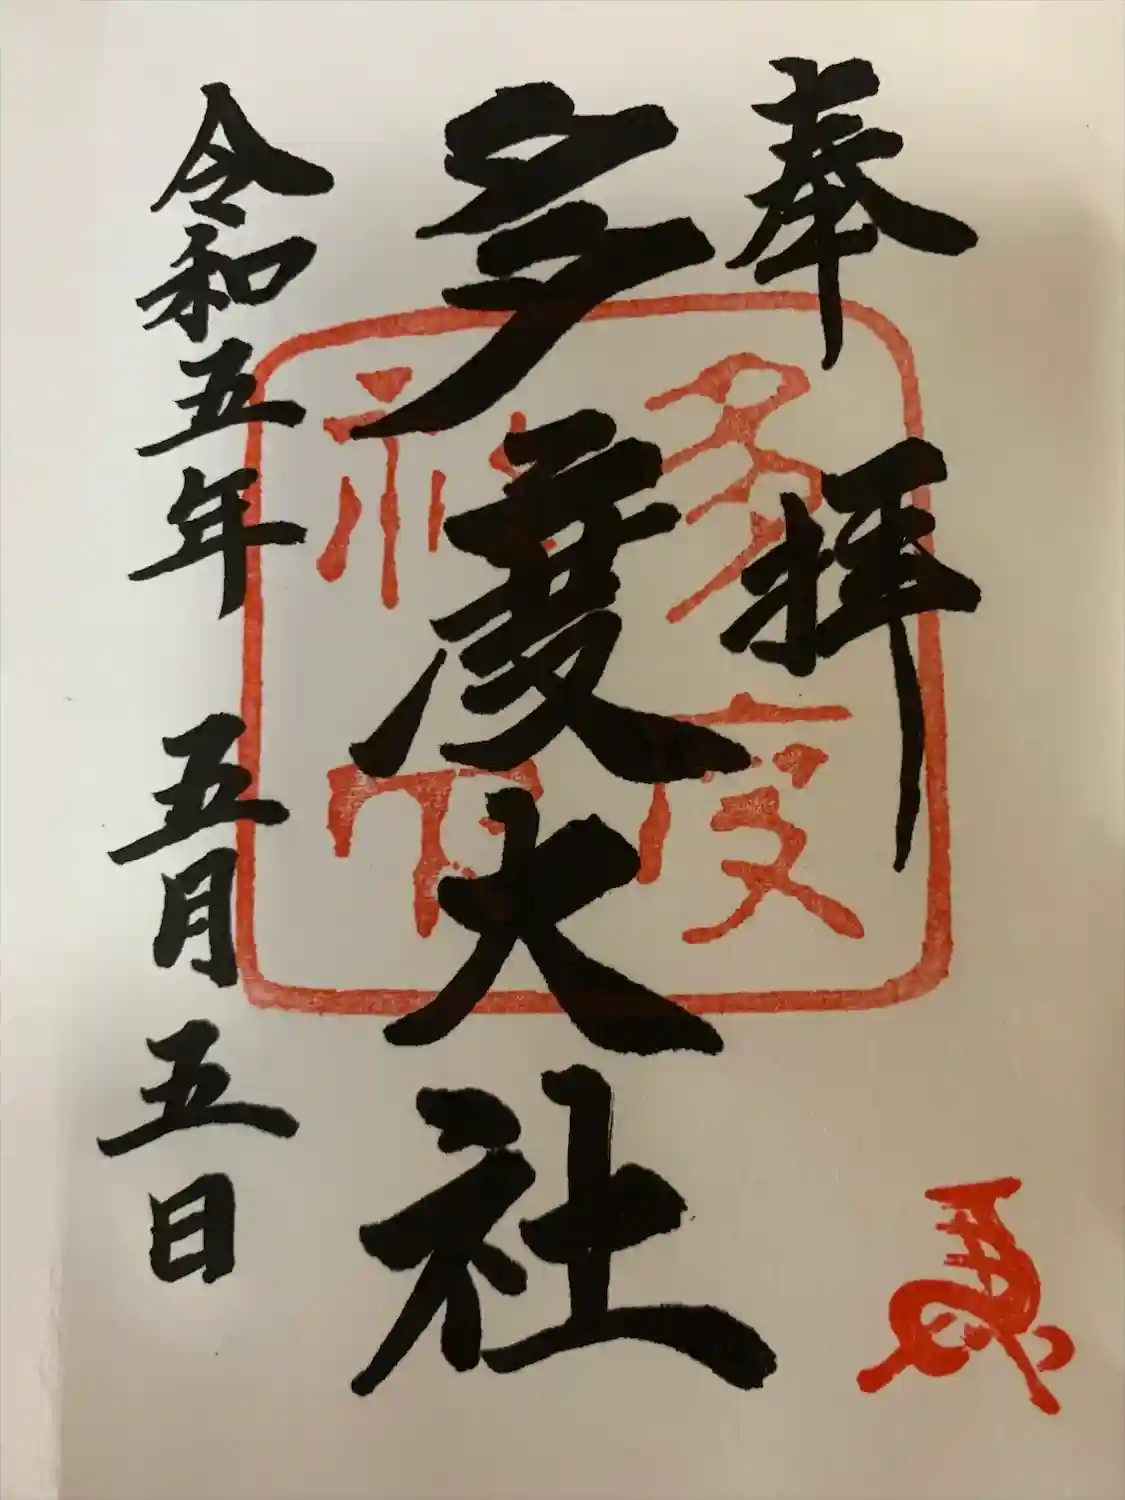 奉拝
多度大社
令和五年 五月 五日
多度
神